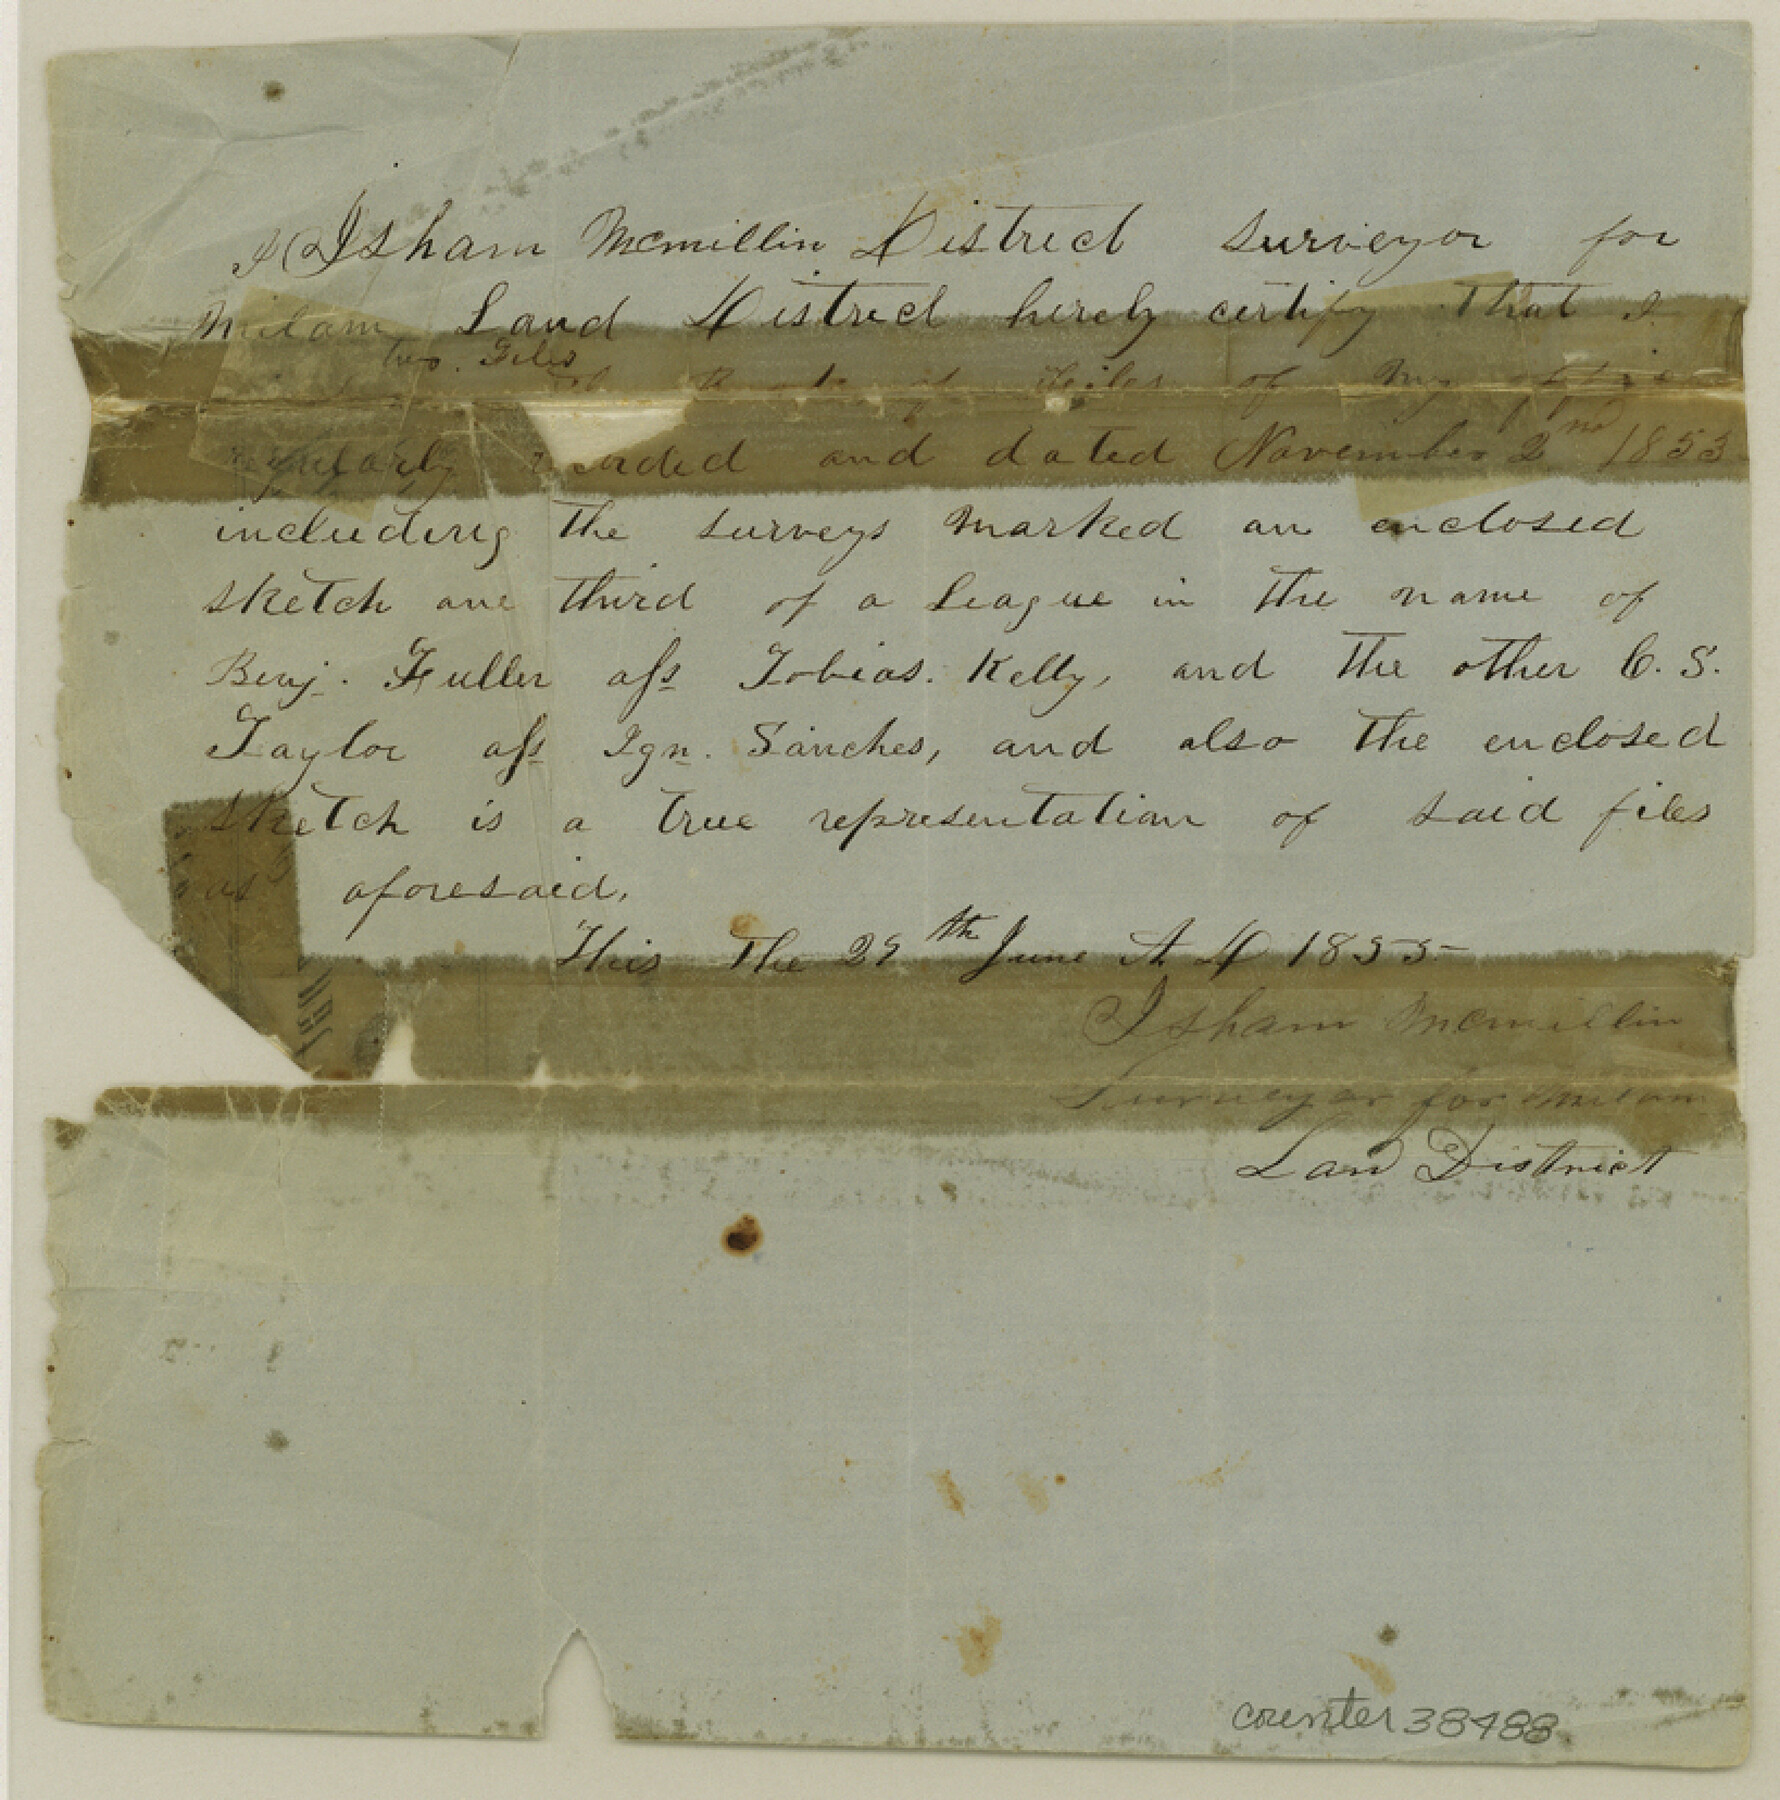 I Isham Mcmillin District surveyor for
Milam Land District hereby certify that I
two Files
of Files of my office
regularly recorded and dated November 2nd 1853
including the surveys marked on enclosed
sketch one third of a League in the name of
Benj. Fuller ass Tobias. Kelly, and the other C. S.
Taylor ass Ign. Sanches, and also the enclosed
sketch is a true representation of said files
as aforesaid.
This the 29th June A D 1855
Isham Mcmillin
Surveyor for Milam
Land District
counter 38488